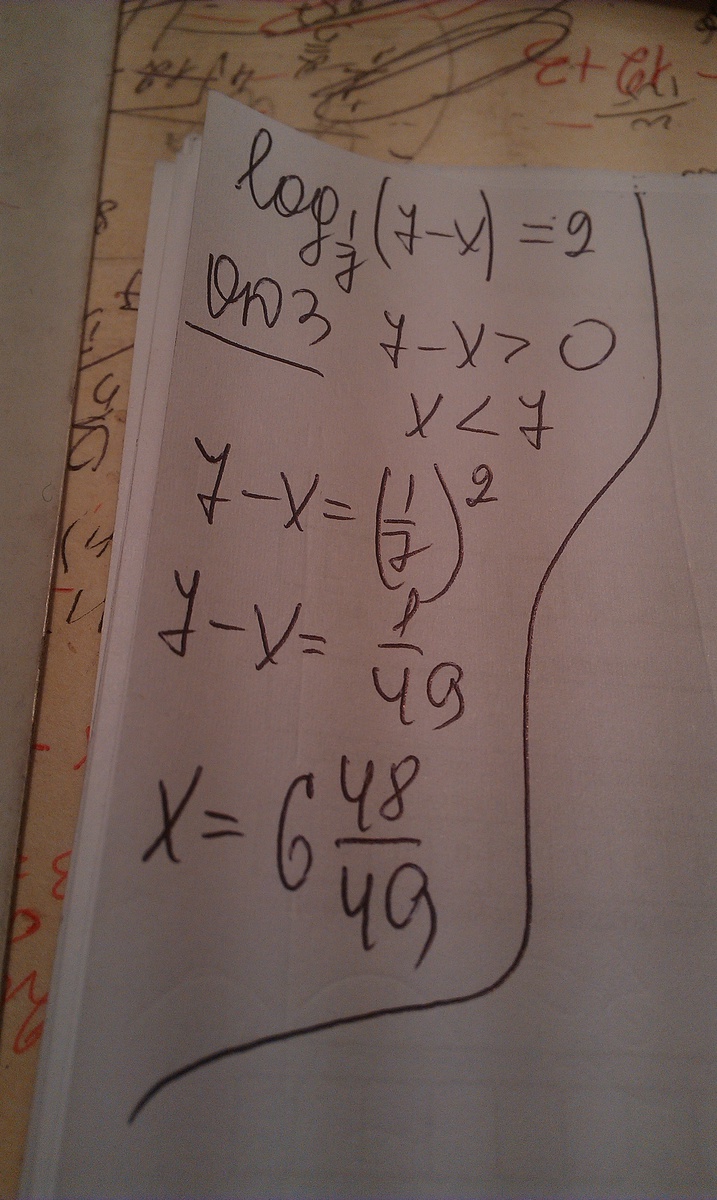 log_{1/7}(7-x)=2
ОДЗ 7-x>0
x<7
7-x=(1/7)^2
7-x=1/49
x=6 48/49